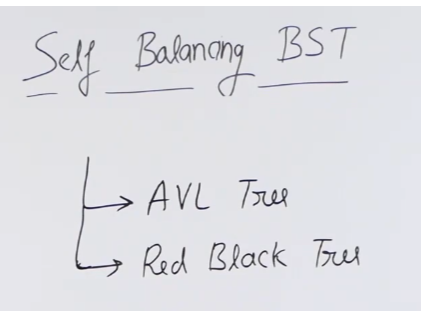 Self Balancing BST
AVL Tree
Red Black Tree